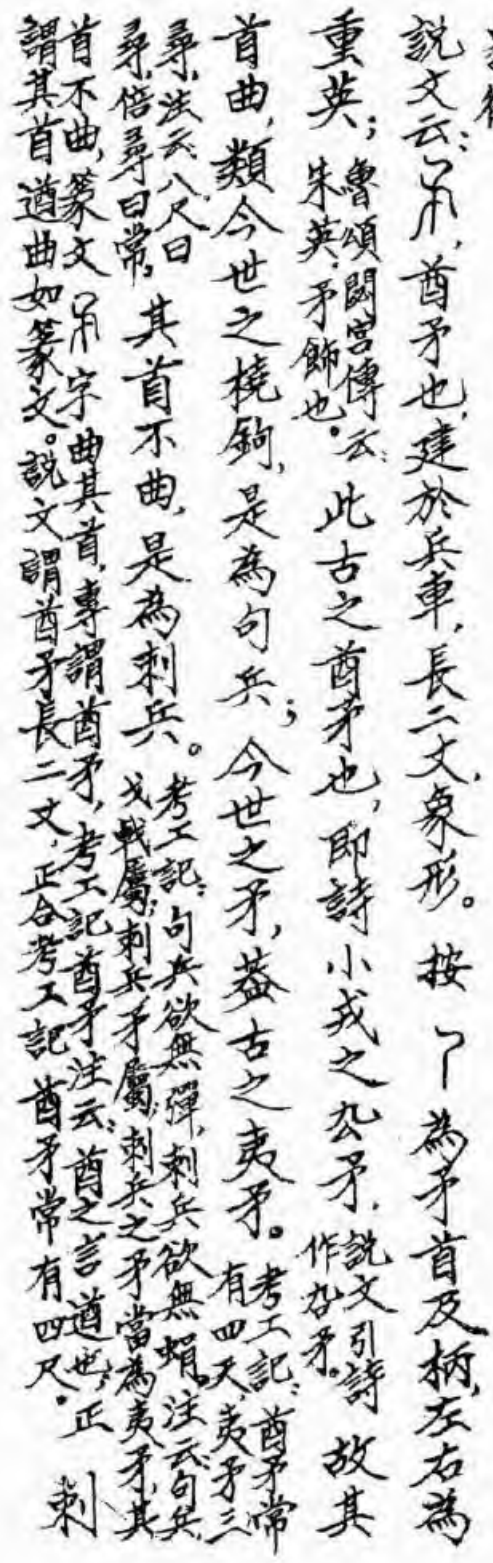 說文云：，酋矛也，建於兵車，長二丈，象形。按 為矛首及柄，左右為
重英；魯頌閟宮傳云：朱英，矛飾也。此古之酋矛也，即詩小戎之厹矛，說文引詩作叴矛。故其
首曲，類今世之橈鉤，是為句兵；今世之矛，葢古之夷矛。考工記：酋矛常有四尺，夷矛三
尋，注云八尺曰尋，倍尋曰常。其首不曲，是為刺兵。考工記：句兵欲無彈，刺兵欲無蜎。注云句兵戈戟屬；刺兵矛屬，刺兵之矛當為夷矛，其
首不曲，篆文 字曲其首，專謂酋矛，考工記酋矛注云：酋之言遒也，正謂其首遒曲如篆文。說文謂酋矛長二丈，正合考工記酋矛常有四尺。刺